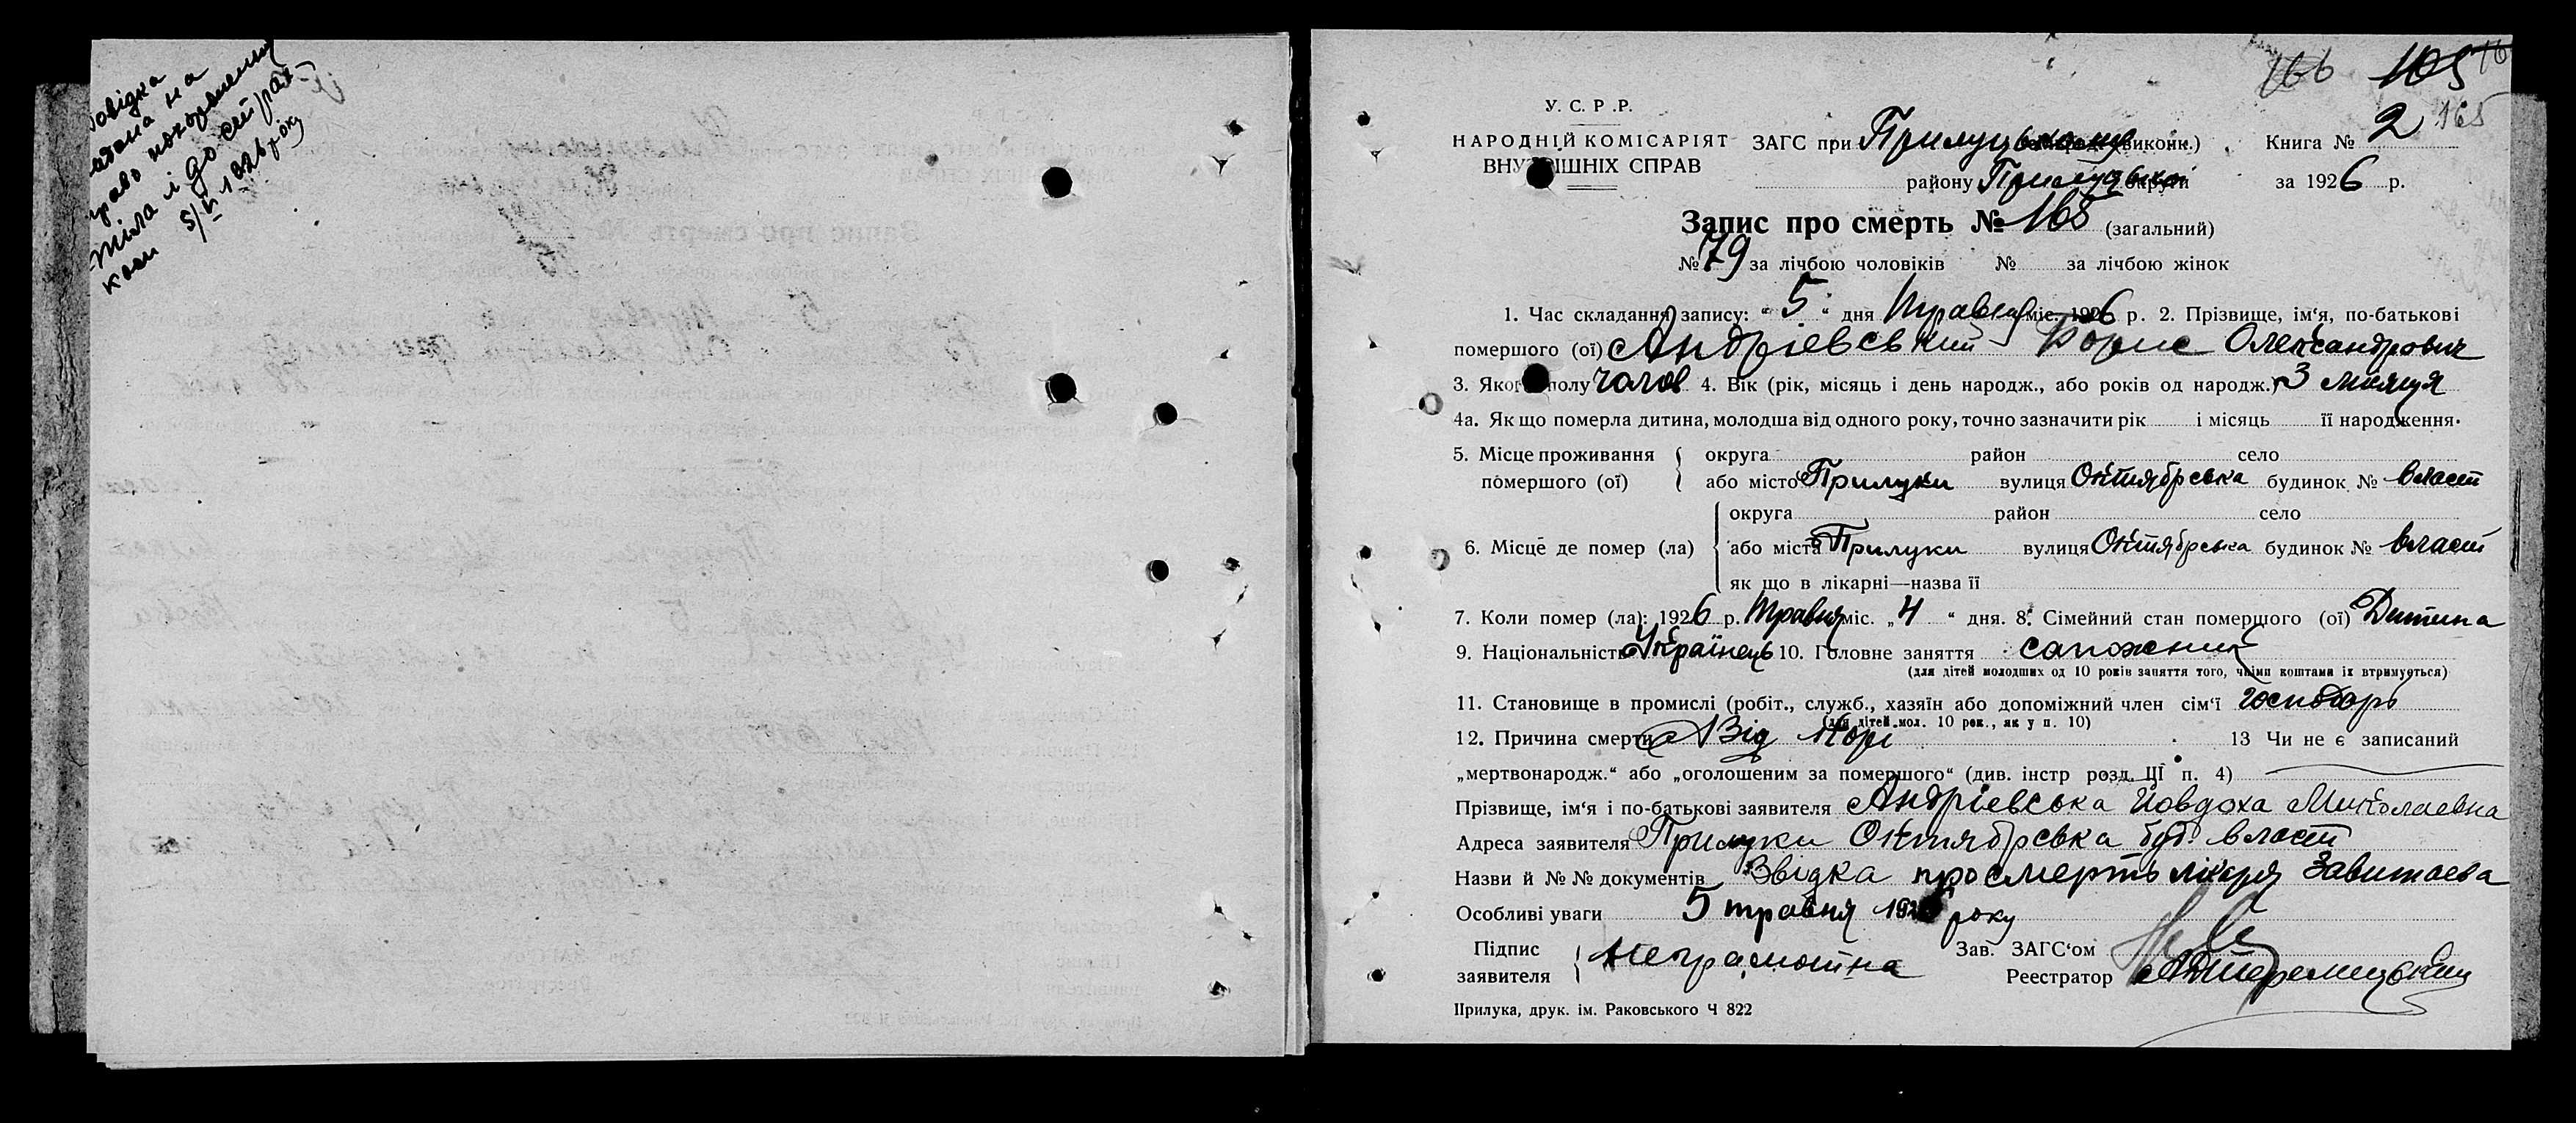 довідка
видана на
право похорачення
тіла і до страх
каси 5/V 1926 року
166 105
165
У. С. Р. Р.
НАРОДНІЙ КОМІСАРІЯТ
ВНУТРІШНІХ СПРАВ
ЗАГС при Прилуцькому викони.) Книга № 2
району Прилуцької округи за 1926 р.
Запис про смерть № 165 (загальний)
№ 79 за лічбою чоловіків № за лічбою жінок
1. Час складання запису: " 5 " дня Травня міс. 1926 р. 2. Прізвище, ім'я, по-батькові
помершого (ої) Андрієвський Борис Олександрович
3. Якого полу чолов 4. Вік (рік, місяць і день народж., або років од народж.) 3 місяця
4а. Як що померла дитина, молодша від одного року, точно зазначити рік і місяць її народження.
5. Місце проживання помершого (ої) { округа район село
або місто Прилуки вулиця Октябрська будинок № власн
6. Місце де помер (ла) { округа район село
або міста Прилуки вулиця Октябрська будинок № власн
як що в лікарні—назва її
7. Коли помер (ла): 1926 р. Травня міс. „ 4 " дня. 8. Сімейний стан помершого (ої) Дитина
9. Національність Українець 10. Головне заняття сапожник
(для дітей молодших од 10 років заняття того, чиїми коштами їх втримується)
11. Становище в промислі (робіт., служб., хазяїн або допоміжний член сім'ї господарь
(для дітей мол. 10 рок., як у п. 10)
12. Причина смерти Від Корі 13 Чи не є записаний
„мертвонародж." або „оголошеним за помершого" (див. інстр розд. ЦІ п. 4)
Прізвище, ім'я і по-батькові заявителя Андрієвська Йовдоха Миколаевна
Адреса заявителя Прилуки Октябрська буд. власн
Назви й №№ документів Звідка про смерть лікаря Завитаева
Особливі уваги 5 травня 1926 року
Підпис заявителя { Неграмотна Зав. ЗАГС'ом
Реестратор
Прилука, друк. ім. Раковського Ч 822